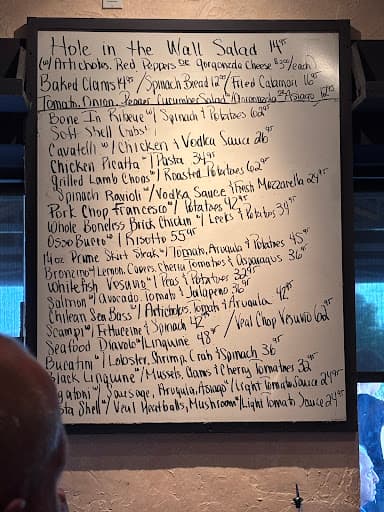 Hole in the Wall Salad 14⁹⁵
(w/ Artichoks, Red Peppers or gorgonzola Cheese $3⁰⁰/each)
Baked Clams 14⁹⁵ / Spinach Bread 12⁹⁵ / Fried Calamari 16⁹⁵
Tomato, Onion, Pepper Cucumber Salad Asiago 12⁹⁵
Bone In Ribeye w/ Spinach & Potatoes 62⁹⁵
Soft Shell Crabs
Cavatelli w/ Chicken & Vodka Sauce 26⁹⁵
Chicken Picatta w/ Pasta 34⁹⁵
Grilled Lamb Chops w/ Roasted Potatoes 62⁹⁵
Spinach Ravioli w/ Vodka Sauce & Fresh Mozzarella 24⁹⁵
Pork Chop Francesco w/ Potatoes 42⁹⁵
Whole Boneless Brick Chicken w/ Leeks & Potatoes 34⁹⁵
Osso Buco w/ Risotto 55⁹⁵
14oz Prime Skirt Steak w/ Tomato, Arugula & Potatoes 45⁹⁵
Bronzino w/ Lemon, Capers, Cherry Tomatoes & Asparagus 36⁹⁵
Whitefish Vesuvio w/ Peas & Potatoes 32⁹⁵
Salmon w/ Avocado, Tomato & Jalapeno 36⁹⁵
Chilean Sea Bass w/ Artichokes, Tomato & Arugula 42⁹⁵
Scampi w/ Fettuccine & Spinach 42⁹⁵ / Veal Chop Vesuvio 62⁹⁵
Seafood Diavolo w/ Linguine 48⁹⁵
Bucatini w/ Lobster, Shrimp, Crab & Spinach 36⁹⁵
Black Linguine w/ Mussels, Clams & Cherry Tomatoes 32⁹⁵
gatoni w/ Sausage, Arugula, Asiago w/ Light Tomato Sauce 24⁹⁵
sta Shell w/ Veal Meatballs, Mushroom w/ Light Tomato Sauce 24⁹⁵